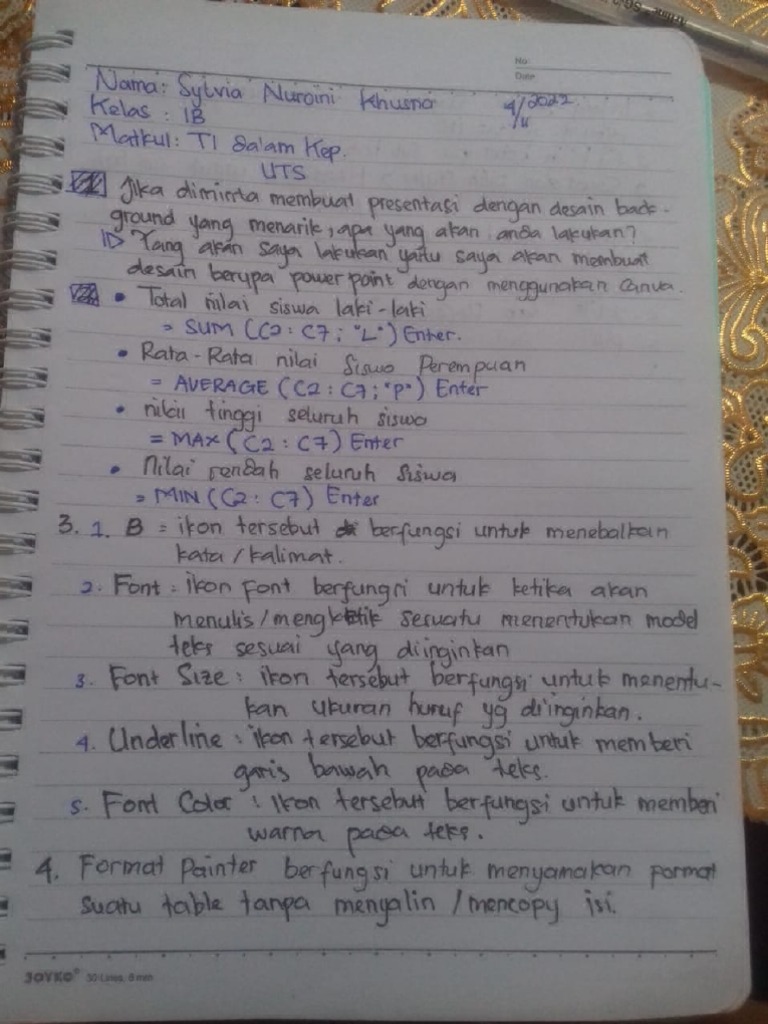 No
Date
Nama: Sylvia Nuroini Khusna 4/11 2022
Kelas : 1B
Matkul: TI dalam Kep.
UTS
1 Jika diminta membuat presentasi dengan desain back-
ground yang menarik, apa yang akan anda lakukan?
Yang akan saya lakukan yaitu saya akan membuat
desain berupa power point dengan menggunakan Canva.
• Total nilai siswa laki-laki
= SUM (C2 : C7 ; "L") Enter.
• Rata-Rata nilai Siswa Perempuan
= AVERAGE (C2 : C7 ; "P") Enter
• nilai tinggi seluruh siswa
= MAX (C2 : C7) Enter
• Nilai rendah seluruh Siswa
= MIN (C2 : C7) Enter
3. 1. B = ikon tersebut berfungsi untuk menebalkan
kata / kalimat.
2. Font = ikon Font berfungsi untuk ketika akan
menulis / mengketik sesuatu menentukan model
teks sesuai yang diinginkan
3. Font Size : ikon tersebut berfungsi untuk menentu-
kan ukuran huruf yg diinginkan.
4. Underline : ikon tersebut berfungsi untuk memberi
garis bawah pada teks.
5. Font Color : Ikon tersebut berfungsi untuk memberi
warna pada teks.
4. Format Painter berfungsi untuk menyamakan format
suatu table tanpa menyalin / mencopy isi.
JOYKO 50 Lines, 8 mm